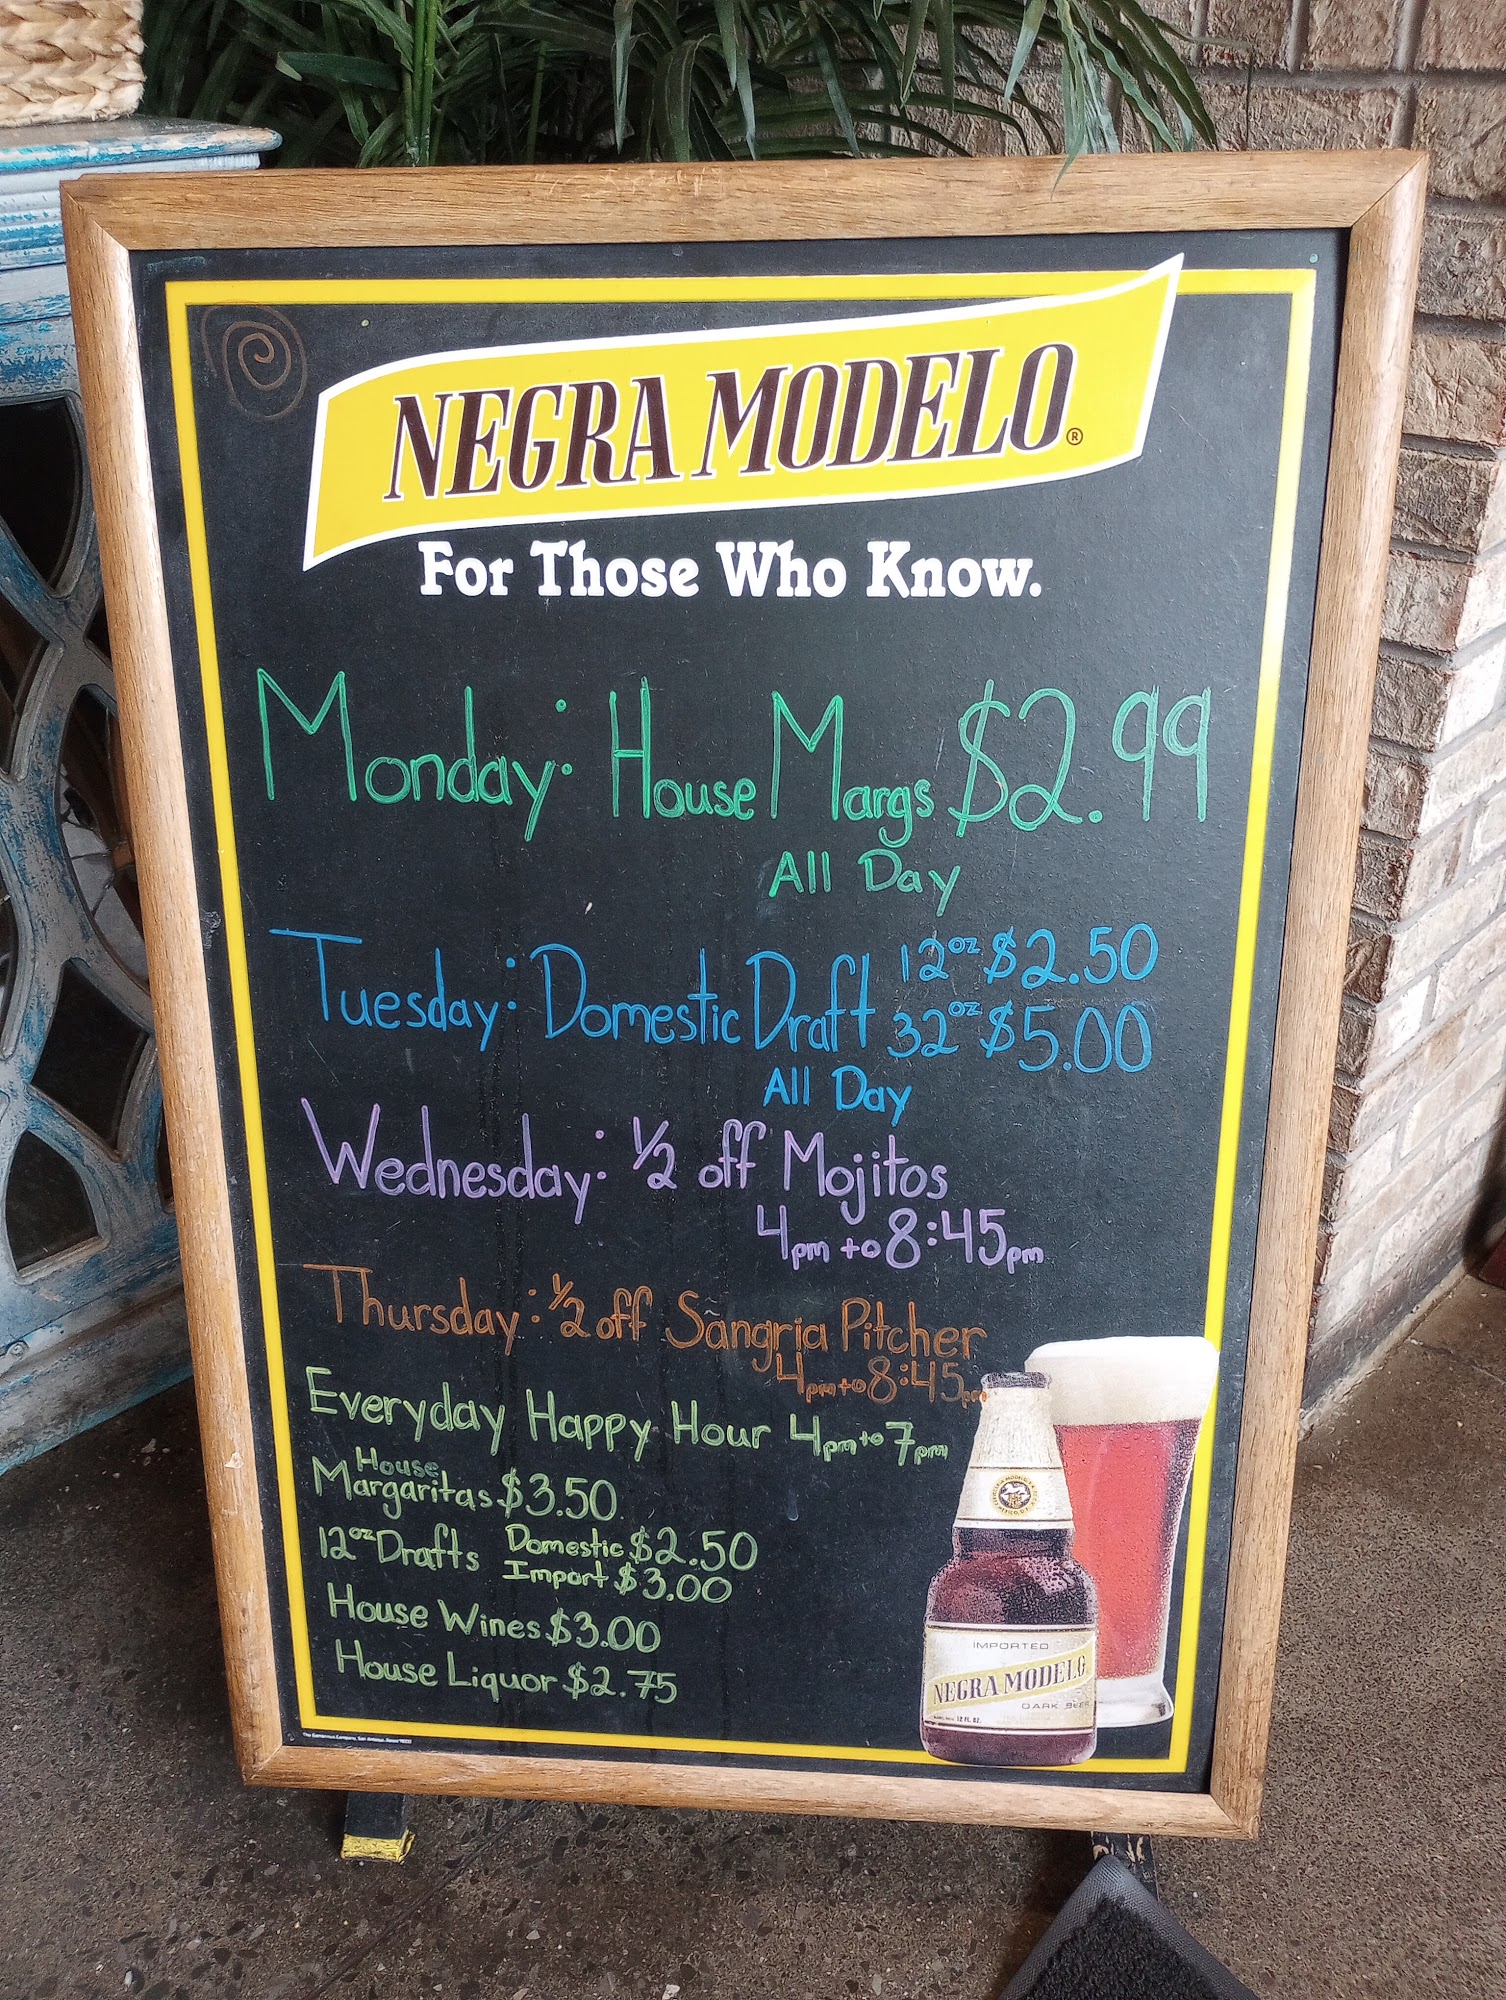 NEGRA MODELO®
For Those Who Know.
Monday: House Margs $2.99
All Day
Tuesday: Domestic Draft 12oz $2.50
32oz $5.00
All Day
Wednesday: 1/2 off Mojitos
4pm to 8:45pm
Thursday: 1/2 off Sangria Pitcher
4pm to 8:45pm
Everyday Happy Hour 4pm to 7pm
House
Margaritas $3.50
12oz Drafts Domestic $2.50
Import $3.00
House Wines $3.00
House Liquor $2.75
IMPORTED
NEGRA MODELO
DARK BEER
12 FL. OZ.